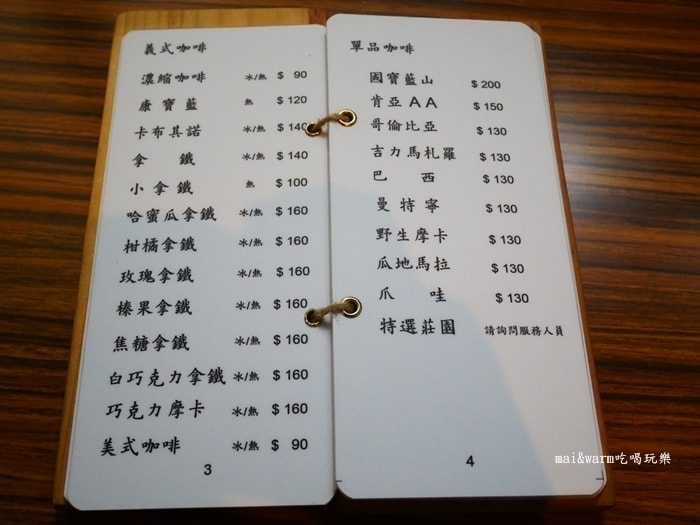 義式咖啡
濃縮咖啡 冰/熱 $ 90
康寶藍 熱 $ 120
卡布其諾 冰/熱 $ 140
拿鐵 冰/熱 $ 140
小拿鐵 熱 $ 100
哈蜜瓜拿鐵 冰/熱 $ 160
柑橘拿鐵 冰/熱 $ 160
玫瑰拿鐵 冰/熱 $ 160
榛果拿鐵 冰/熱 $ 160
焦糖拿鐵 冰/熱 $ 160
白巧克力拿鐵 冰/熱 $ 160
巧克力摩卡 冰/熱 $ 160
美式咖啡 冰/熱 $ 90
3
單品咖啡
國寶藍山 $ 200
肯亞AA $ 150
哥倫比亞 $ 130
吉力馬札羅 $ 130
巴西 $ 130
曼特寧 $ 130
野生摩卡 $ 130
瓜地馬拉 $ 130
爪哇 $ 130
特選莊園 請詢問服務人員
4
mai&warm吃喝玩樂